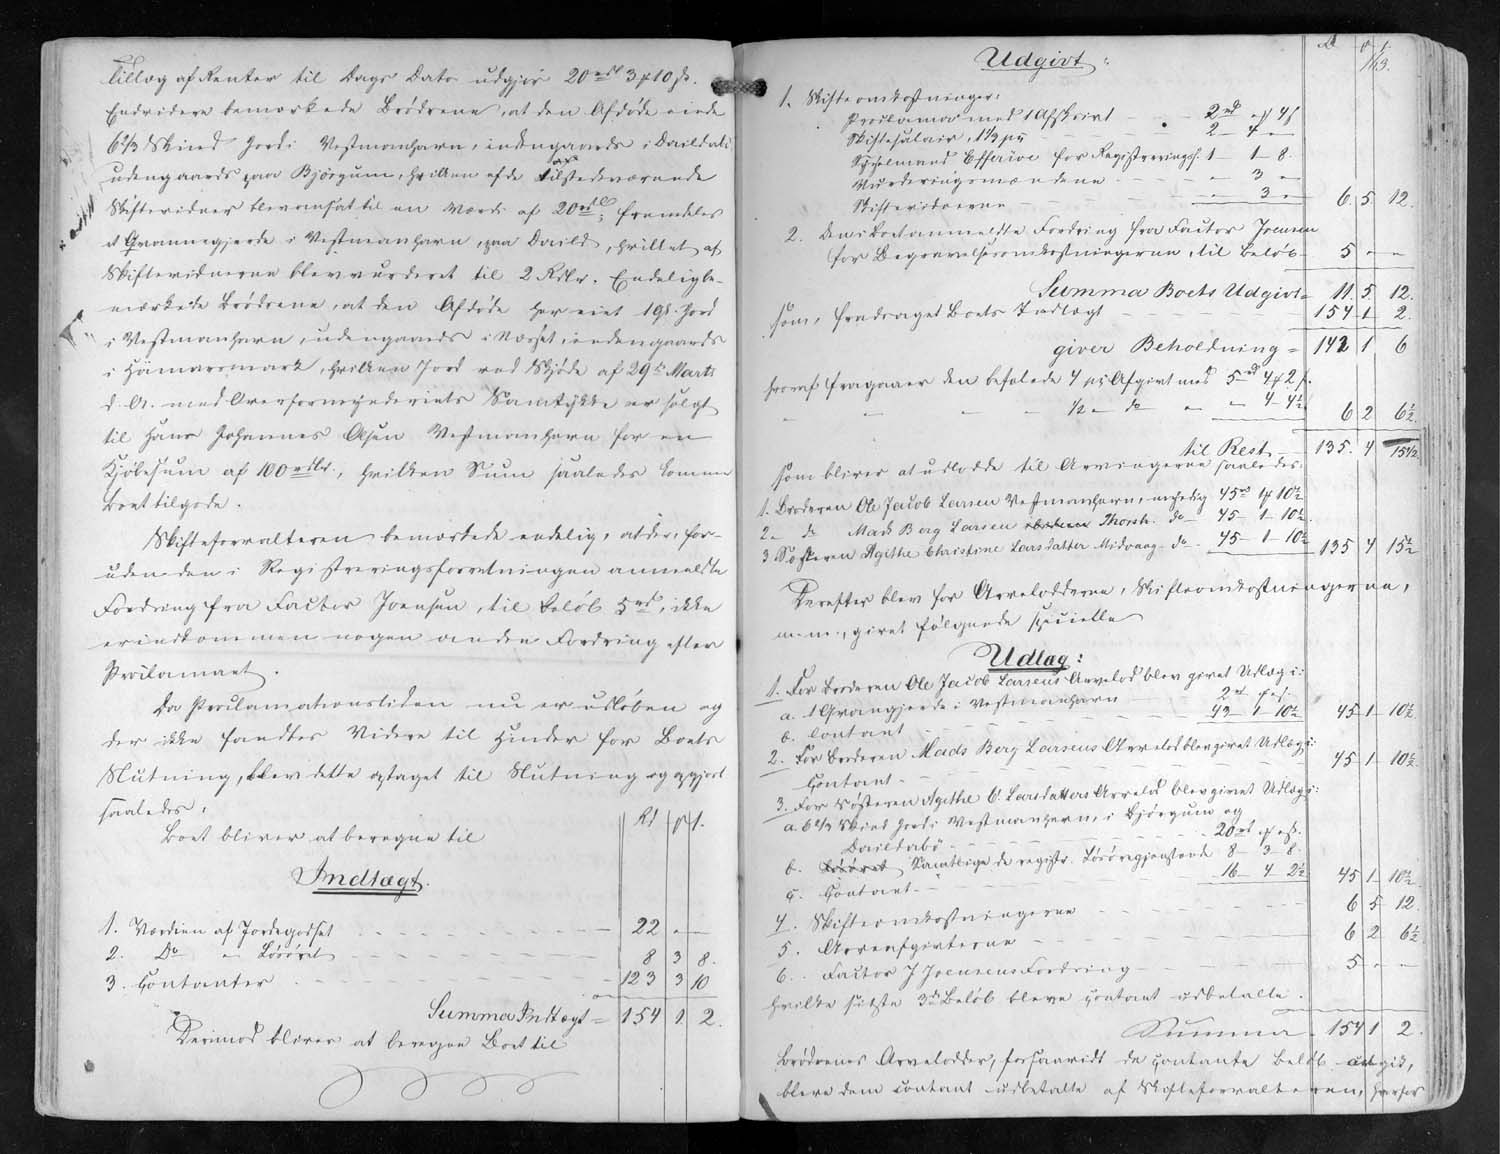 Tillæg af Renter til Dags Dato udgjør 20 rd 3 ₰ 10 s.
Endvidere bemærkede Brødrene, at den Afdøde eiede
6 2/3 Skind Jord i Vestmanhavn, indengaards i Dalldabø
udengaards paa Bjørgum, hvilken af de tilstedeværende
Skiftevidner blev ansat til en Værdi af 20 rdl; fremdeles
et Grannegjerde i Vestmanhavn, paa Daild, hvilket af
Skiftevidnerne blev vurderet til 2 Rdlr. Endelig be-
mærkede Brødrene, at den Afdøde har eiet 1 Gl. Jord
i Vestmanhavn, udengaards i Næsset, indengaards
i Hamarsmark, hvilken Jord ved Skjøde af 29de Marts
d. A. med Overformynderiets Samtykke er solgt
til Hans Johannes Olsen Vestmanhavn for en
Kjøbesum af 100 rdlr., hvilken Sum saaledes komme
Boet tilgode.
Skifteforvalteren bemærkede endelig, at der, for-
uden den i Registreringsforretningen anmeldte
Fordring fra Factor Joensen, til Beløb 5 rd, ikke
er indkommen nogen anden Fordring efter
Proclamaet.
Da Proclamationstiden nu er udløben og
der ikke fandtes Videre til Hinder for Boets
Slutning, blev dette optaget til Slutning og opgjort
saaledes:
Boet bliver at beregne til
Rd ₰ s.
Indtægt.
1. Værdien af Jordegodset 22 " "
2. Do " Løsøret 8 3 8.
3. Contanter 123 3 10
Summa Indtægt = 154 1 2.
Derimod bliver at beregne Boet til
Udgivt:
Rd ₰ s.
1. Skifteomkostninger:
Proclama med 1 Afskrivt 2 rd " ₰ 4 s
Skiftesalair, 1 1/3 pC 2 – 4 –
Sysselmand Effersøe for Registreringsf. 1 – 1 – 8.
Vurderingsmændene " 3 "
Skiftevidnerne – 3 – 6 5 12.
2. Den i Boet anmeldte Fordring fra Factor Joensen
for Begravelsesomkostningerne, til Beløb 5 – –
Summa Boets Udgivt = 11. 5. 12.
som, fradraget Boets Indtægt 154 1 2.
giver Beholdning = 142 1 6
hvoraf fragaaer den befalede 4 pC Afgivt med 5 rd 4 ₰ 2 s.
" – – – 1/2 – do – – 4 – 4 1/2 6 2 6 1/2.
til Rest 135. 4 15 1/2
som bliver at udlodde til Arvingerne saaledes:
1. Broderen Ole Jacob Larsen Vestmanhavn, myndig 45 rd 1 ₰ 10 1/2
2. do Mads Berg Larsen Thorsh. do – 45 – 1 – 10 1/2.
3 Søsteren Agithe Christine Larsdatter Midvaag – do – 45 – 1 – 10 1/2 135 4 15 1/2
Derefter blev for Arvelodderne, Skifteomkostningerne,
m. m., givet følgende specielle
Udlæg:
1. For Broderen Ole Jacob Larsens Arvelod blev givet Udlæg i:
a. 1 Grangjerde i Vestmanhavn 2 rd " ₰ " s.
b. Contant 43 – 1 – 10 1/2 45 1 – 10 1/2
2. For Broderen Mads Berg Larsens Arvelod blev givet Udlæg i:
Contant 45 1 – 10 1/2
3. For Søsteren Agithe C. Larsdatters Arvelod blev givet Udlæg i:
a. 6 2/3 Skind Jord i Vestmanhavn, i Bjørgum og
Daildabø 20 rd " ₰ " s.
b. Løsøret Samtlige de registr. Løsøregjenstande 8 – 3 – 8.
c. Contant 16 – 4 – 2 1/2 45 1 – 10 1/2
4. Skifteomkostningerne 6 5 12.
5. Arveafgivterne 6 2 6 1/2
6. Factor J Joensens Fordring 5 – –
hvilke sidste 3de Beløb bleve contant udbetalte.
Summa 154 1 2.
Brødrenes Arvelodder, forsaavidt de contante Beløb angik,
bleve dem contant udbetalte af Skifteforvalteren, hvorfor